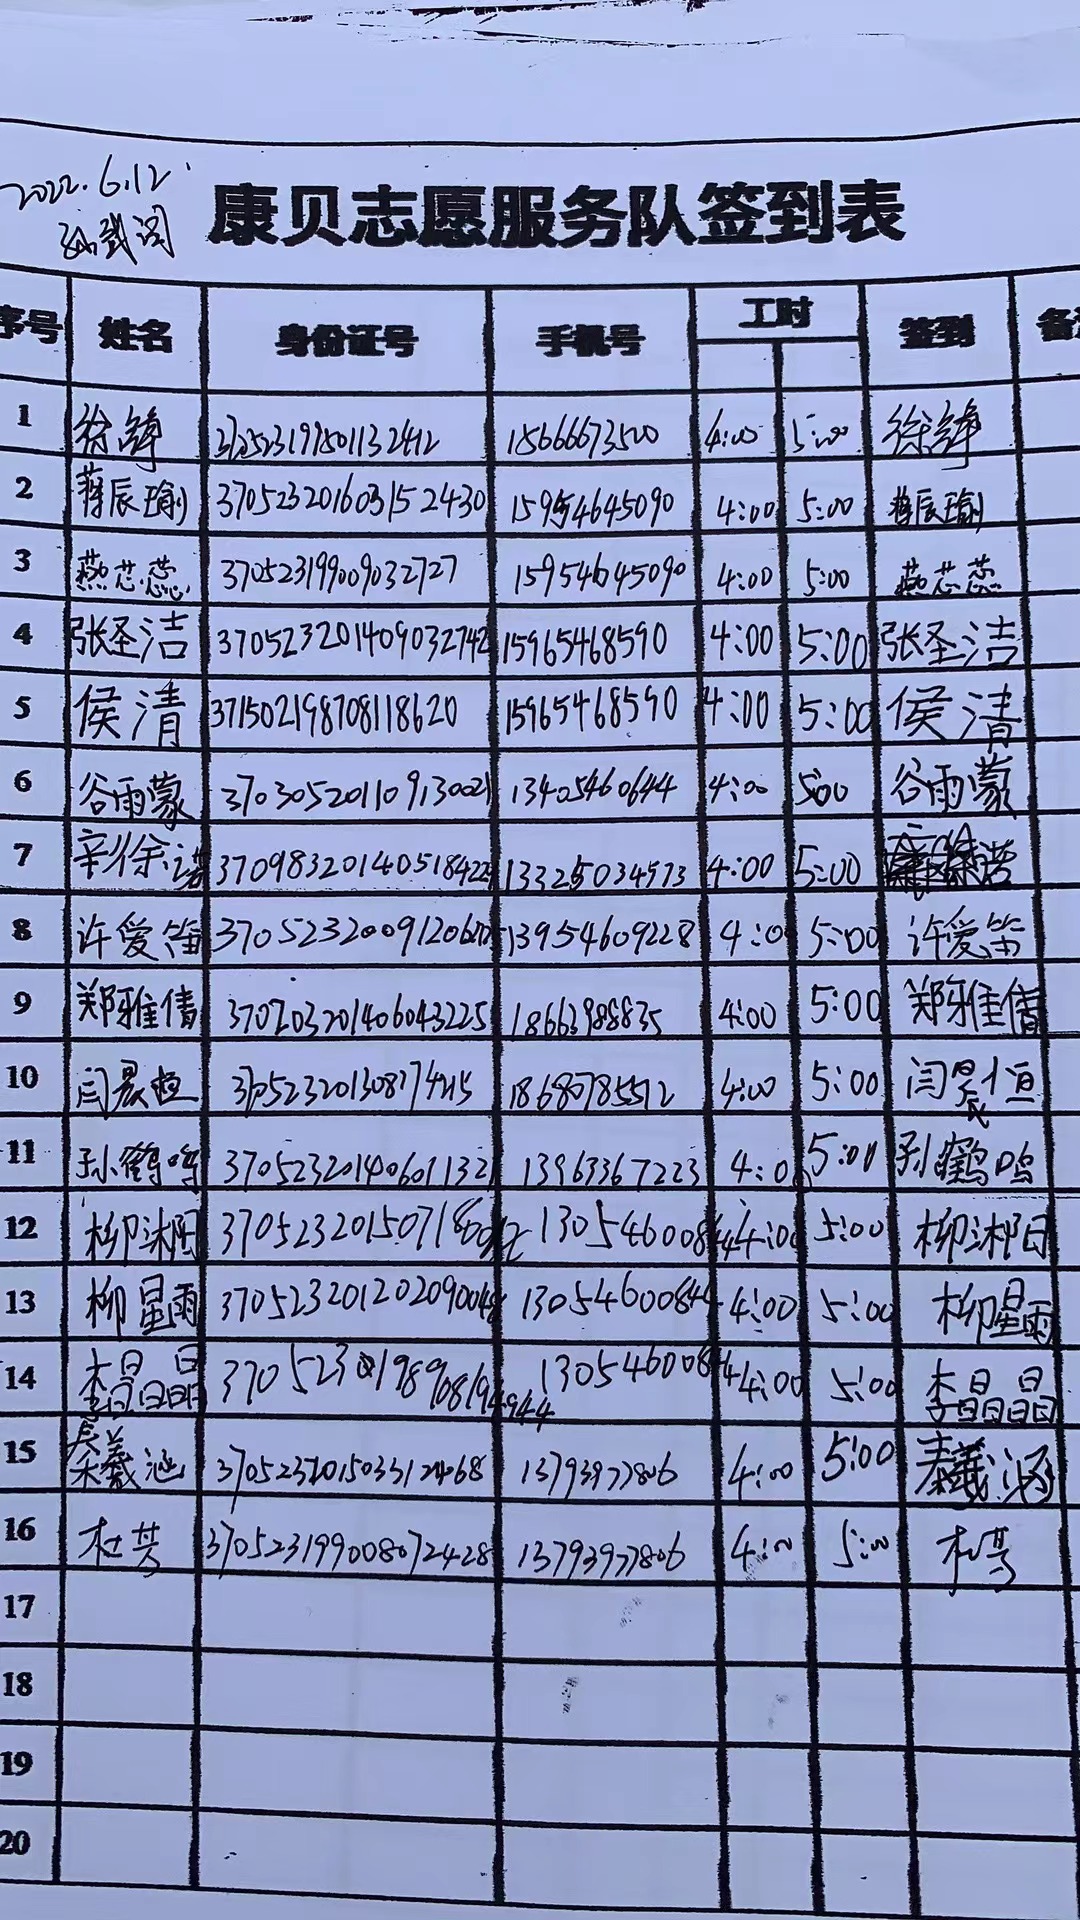 2022.6.12
康贝志愿服务队签到表
序号 姓名 身份证号 手机号 工时 签到 备注
1 徐锋 15666673500 4:00 5:00 徐锋
2 蒋辰瑜 370523201603152430 15954645090 4:00 5:00 蒋辰瑜
3 燕芯蕊 370523199009032727 15954645090 4:00 5:00 燕芯蕊
4 张圣洁 370523201409032742 15965468590 4:00 5:00 张圣洁
5 侯清 371502198708118620 15965468590 4:00 5:00 侯清
6 谷雨蒙 370305201109130021 13405460644 4:00 5:00 谷雨蒙
7 辛徐诺 4:00 5:00
8 许爱笛 13954609228 4:00 5:00 许爱笛
9 郑雅倩 370703201406043225 18663988835 4:00 5:00 郑雅倩
10 闫晨恒 18680785512 4:00 5:00 闫晨恒
11 孙鹤鸣 13963367223 4:00 5:00 孙鹤鸣
12 柳湘阳 13054600844 4:00 5:00 柳湘阳
13 柳星雨 370523201202090048 13054600844 4:00 5:00 柳星雨
14 李晶晶 13054600844 4:00 5:00 李晶晶
15 秦羲涵 370523201503312468 13793977806 4:00 5:00 秦羲涵
16 杜芳 370523199008072428 13793977806 4:00 5:00 杜芳
17
18
19
20